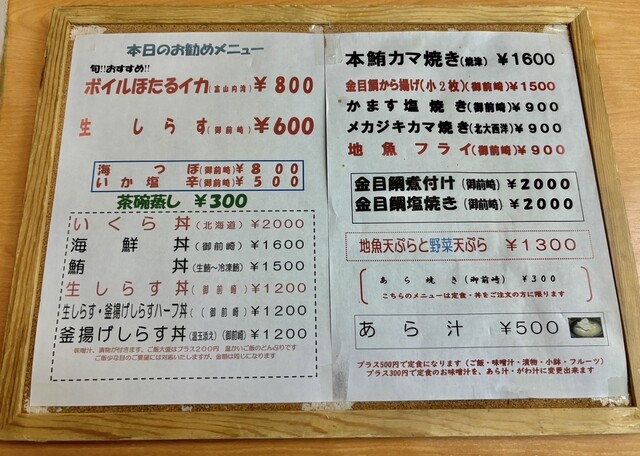 本日のお勧めメニュー
旬!!おすすめ!!
ボイルほたるイカ(富山内湾)￥800
生しらす(御前崎)￥600
海つぼ(御前崎)￥800
いか塩辛(御前崎)￥500
茶碗蒸し ￥300
いくら丼(北海道)￥2000
海鮮丼(御前崎)￥1600
鮪丼(生鮪～冷凍鮪)￥1500
生しらす丼(御前崎)￥1200
生しらす・釜揚げしらすハーフ丼(御前崎)￥1200
釜揚げしらす丼(温玉添え)(御前崎)￥1200
味噌汁、漬物が付きます。ご飯大盛はプラス200円 温かいご飯のどんぶりです
ご飯少な目のご要望には対応いたしますが、金額は同じになります
本鮪カマ焼き(焼津)￥1600
金目鯛から揚げ(小2枚)(御前崎)￥1500
かます塩焼き(御前崎)￥900
メカジキカマ焼き(北大西洋)￥900
地魚フライ(御前崎)￥900
金目鯛煮付け(御前崎)￥2000
金目鯛塩焼き(御前崎)￥2000
地魚天ぷらと野菜天ぷら ￥1300
あら焼き(御前崎)￥300
こちらのメニューは定食・丼をご注文の方に限ります
あら汁 ￥500
プラス500円で定食になります(ご飯・味噌汁・漬物・小鉢・フルーツ)
プラス300円で定食のお味噌汁を、あら汁・がわ汁に変更出来ます